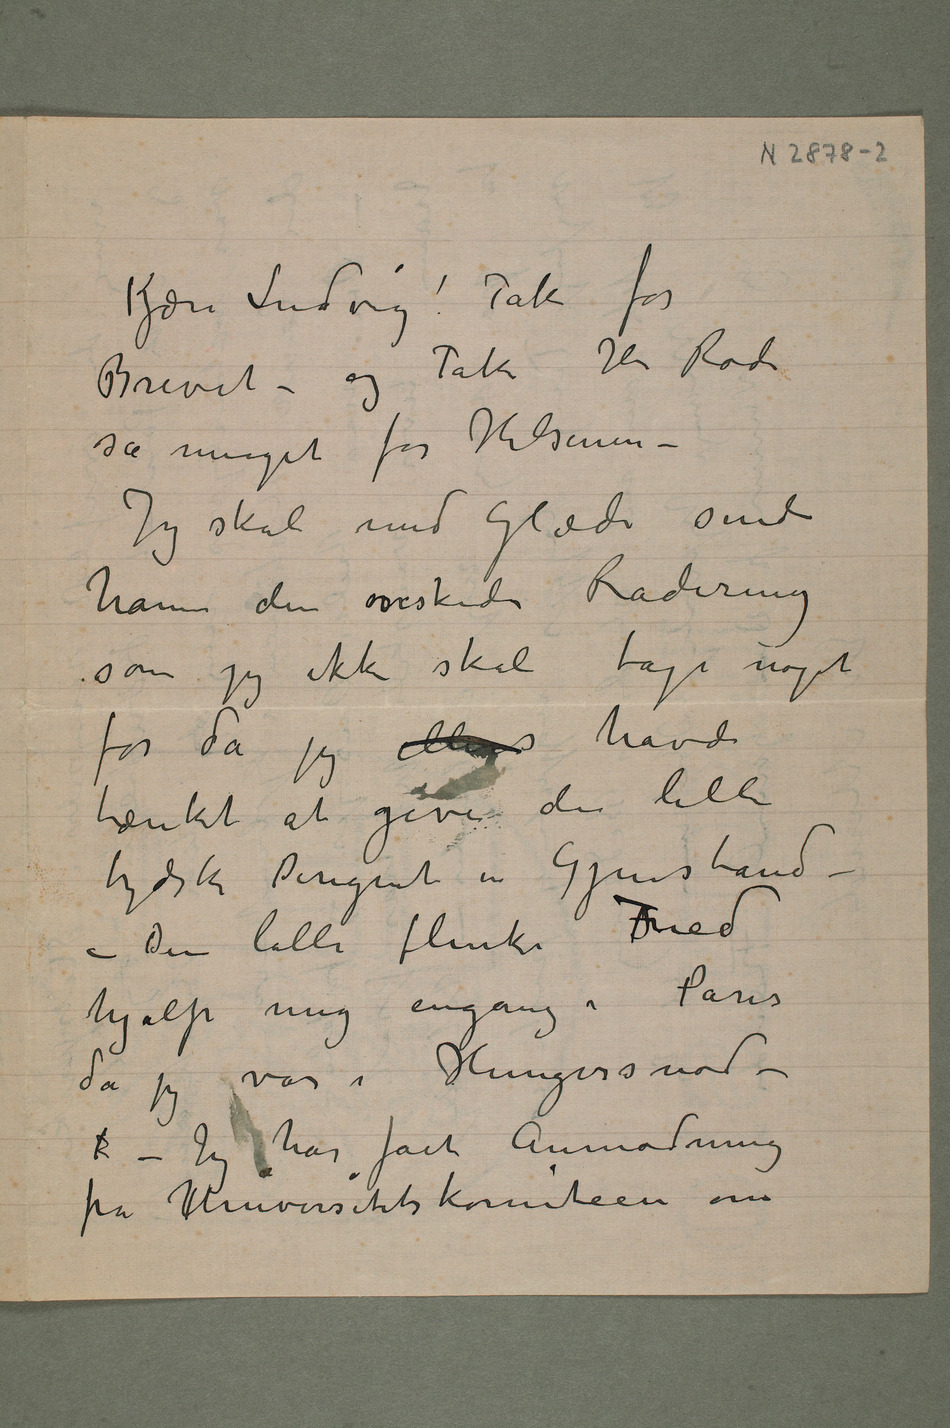 N 2878-2
Kjære Ludvig! Tak for
Brevet – og Tak Hr Rode
så meget for Hilsenen –
Jeg skal med Glæde sende
ham den ønskede Radering
som jeg ikke skal tage noget
for da jeg ellers havde
tænkt at give den lille
tydske Dirigent en Gjenstand –
– Den lille flinke Fried
hjalp mig engang i Paris
da jeg var i Hungersnød –
– Jeg har fåt Anmodning
fra Universitetskomiteen om